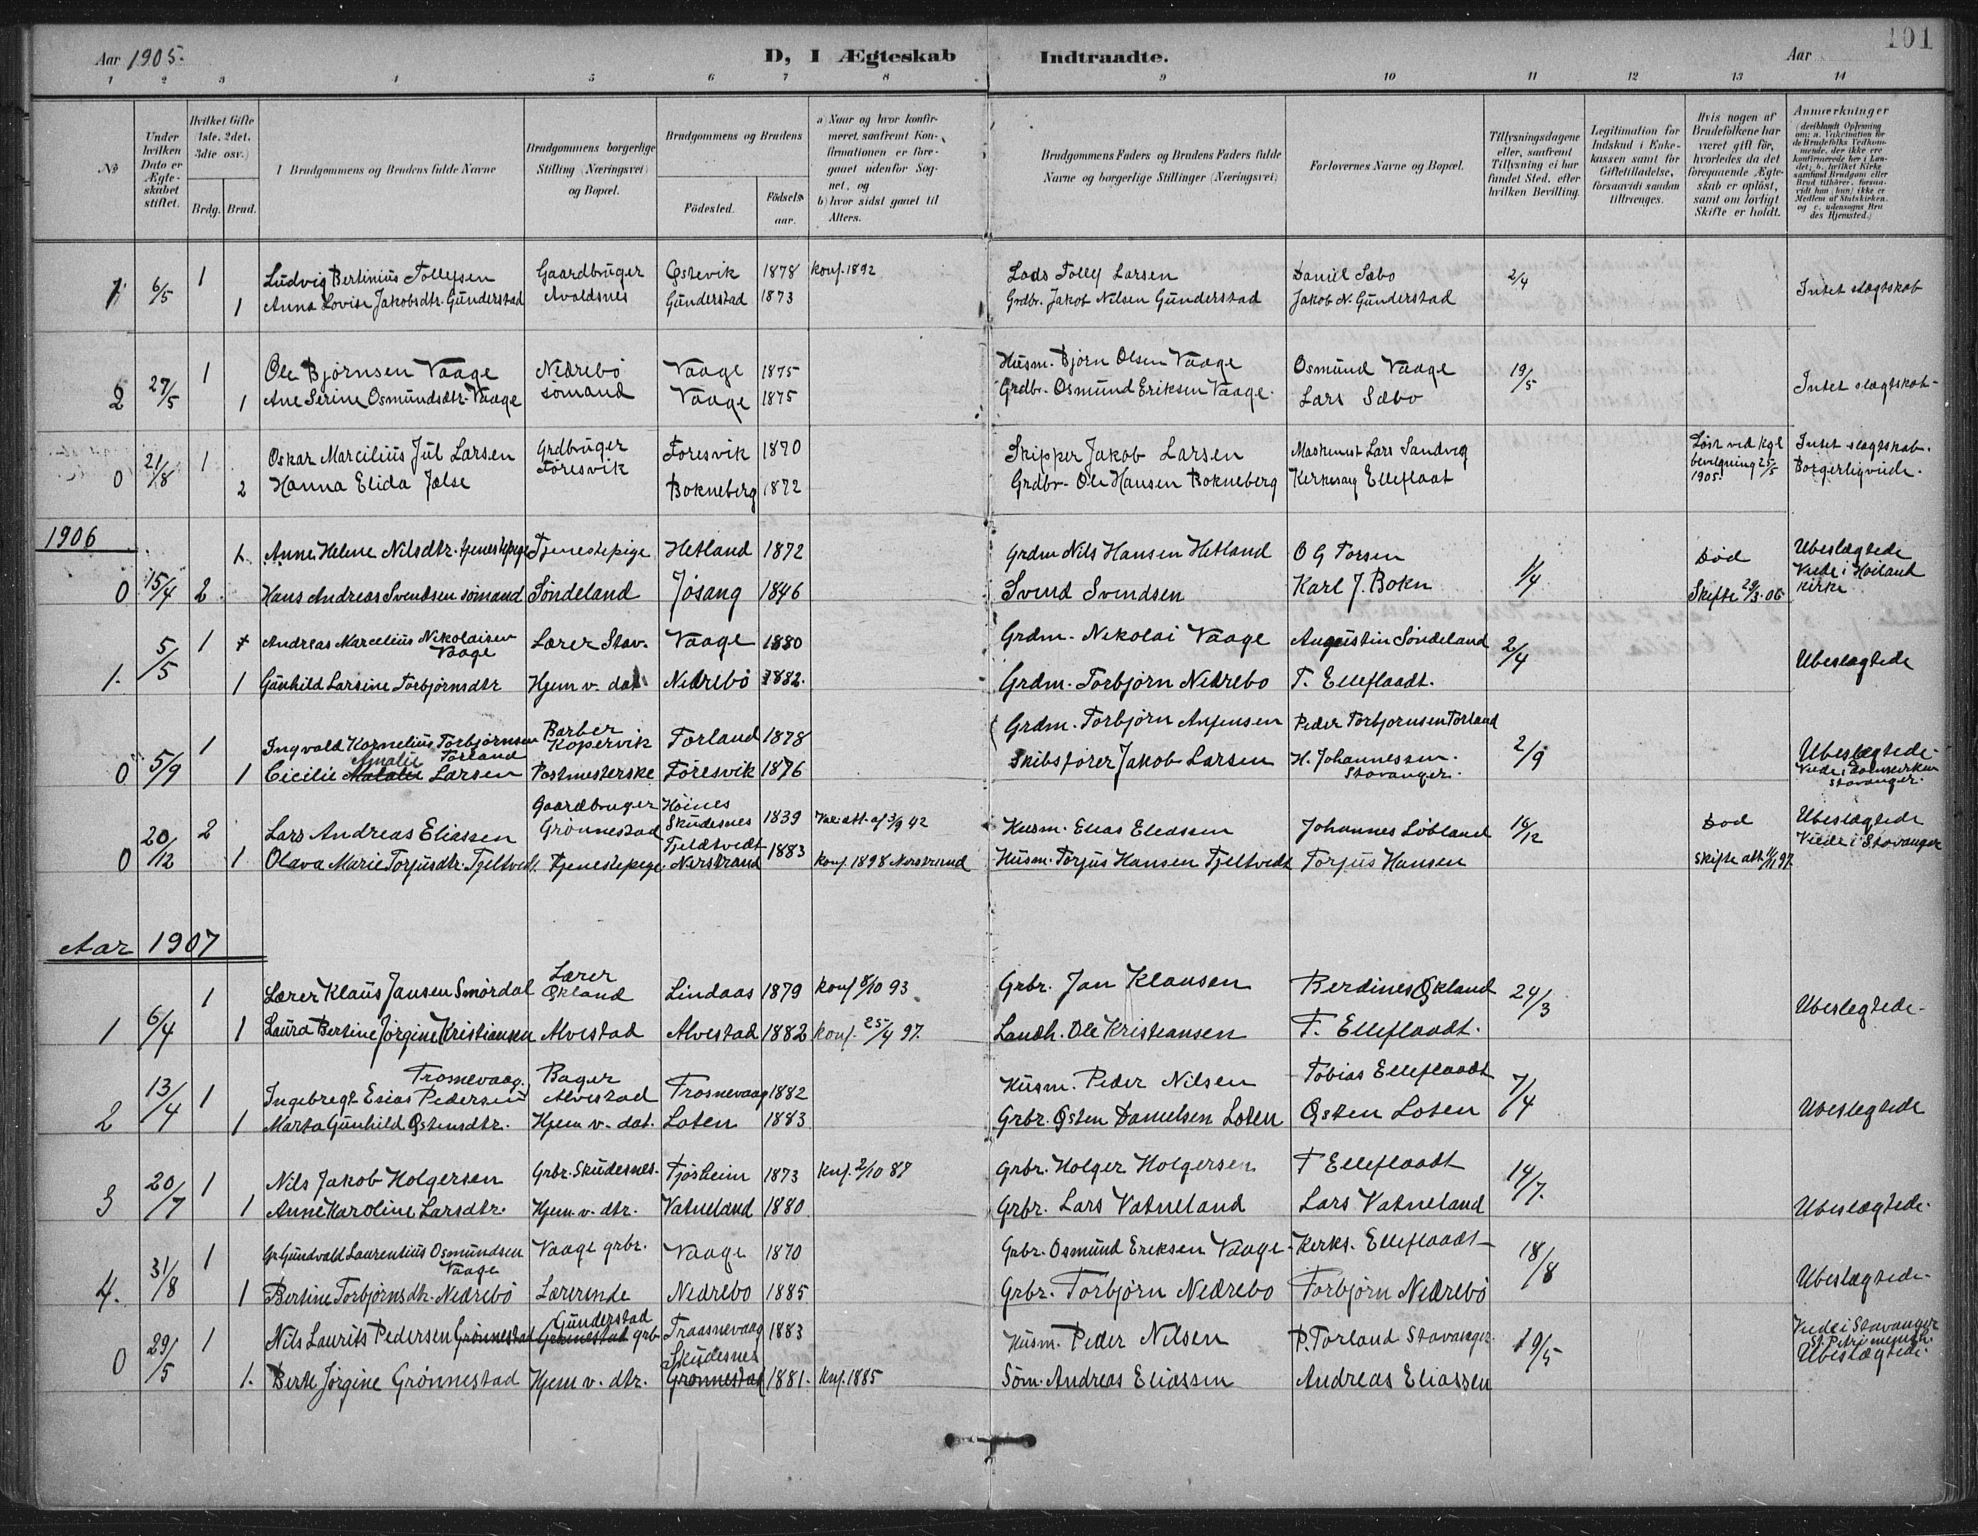 Aar 1905. D, I Ægteskab Indtraadte. Aar 101
1 2 3 4 5 6 7 8 9 10 11 12 13 14
№
Under hvilken Dato er Ægteskabet stiftet.
Hvilket Gifte 1ste. 2det. 3die osv.)
Brdg. Brud.
Brudgommens og Brudens fulde Navne
Brudgommens borgerlige Stilling (Næringsvei) og Bopæl.
Brudgommens og Brudens
Fødested.
Fødselsaar.
a) Naar og hvor konfirmeret, saafremt Konfirmationen er foregaaet udenfor Sognet, og
b) hvor sidst gaaet til Alters.
Brudgommens Faders og Brudens Faders fulde Navne og borgerlige Stillinger (Næringsvei)
Forlovernes Navne og Bopæl.
Tillysningsdagene eller, saafremt Tillysning ei har fundet Sted, efter hvilken Bevilling.
Legitimation for Indskud i Enkekassen samt for Giftetilladelse, forsaavidt saadan tiltrænges.
Hvis nogen af Brudefolkene har været gift før, hvorledes da det foregaaende Ægteskab er opløst, samt om lovligt Skifte er holdt.
Anmærkninger
1 6/5 1 Ludvig Bertinius Tollefsen Gaardbruger Østevik 1878 konf. 1892 Lods Tolly Larsen Daniel Sæbo 2/4
1 Anna Lovise Jakobsdtr. Gunderstad Avaldsnes Gunderstad 1873 Grdbr. Jakob Nilsen Gunderstad Jakob N. Gunderstad Intet slægtskab
2 27/5 1 Ole Bjørnsen Vaage Nedrebø Vaage 1875 Husm. Bjørn Olsen Vaage Osmund Vaage 19/5
1 Ane Serine Osmundsdtr. Vaage sømand Vaage 1875 Grdbr. Osmund Eriksen Vaage. Lars Sæbo Intet slægtskab
0 21/8 1 Oskar Marcilius Jul Larsen Grdbruger Føresvik Føresvik 1870 Skipper Jakob Larsen Maskinist Lars Sandvig Løst ved kgl bevilgning 25/5 1905. Intet slægtskab.
2 Hanna Elida Jølse Bokneberg 1872 Grdbr. Ole Hansen Bokneberg Kirkesang Elleflaat Borgerligviede.
1906
1. Anne Helene Nilsdtr. tjenestepige Tjenestepige Hetland 1872 Grdm Nils Hansen Hetland O G Torsen Død Ubeslægtede
0 15/4 2. Hans Andreas Svendsen sømand Søndeland Jøsang 1846 Svend Svendsen Karl J. Bokn 1/4 Skifte 29/3. 06 Viede i Høiland Kirke
5/5 1 Andreas Marcelius Nikolaisen Vaage Lærer Stav. Vaage 1880 Grdm. Nikolai Vaage Augustin Søndeland 2/4
1. 1 Gunhild Larsine Torbjørnsdtr Hjem v. dat Nedrebø 1882. Grdm. Torbjørn Nedrebo T. Elleflaadt. Ubeslægtede
0 5/9 1 Ingvald Kornelius Torbjørnsen Torland Barber Kopervik Torland 1878 Grdm. Torbjørn Anfensen Peder Torbjørnsen Torland 2/9
1 Cicilie Amalie Larsen Postmesterske Føresvik 1876 Skibsfører Jakob Larsen H. Johannessen Stavanger. Ubeslægtede. Viede i Domkirken Stavanger.
0 20/12 2 Lars Andreas Eliassen Gaardbruger Grønnestad Høines Skudesnes 1839 Husm. Elias Eliassen Johannes Løbland 16/12 Død Ubeslægtede
1 Olava Marie Torjusdtr. Tjeltvedt. Tjenestepige Tjeldtvedt Nerstrand 1883 konf. 1898 Nerstrand Husm. Torjus Hansen Tjeltvedt Torjus Hansen Skifte att. 11/11 97. Viede i Stavanger
Aar 1907
1 6/4 1 Lærer Klaus Jansen Smørdal Lærer Økland Lindaas 1879 konf 8/10 93 Grbr. Jan Klausen Berdines Økland 24/3
1 Laura Bertine Jørgine Kristiansen Alvestad Alvestad 1882 konf. 25/4 97. Landh. Ole Kristiansen T. Elleflaadt. Ubeslegtede.
2 13/4 1 Ingebregt Esias Pedersen Trosnevaag. Bager Alvestad Trosnevaag 1882 Husm. Peder Nilsen Tobias Elleflaadt 7/4
1 Marta Gunhild Østensdtr. Hjem v. dat. Loten 1883 Grbr. Østen Danielsen Loten Østen Loten Ubeslegtede
3 20/7 1 Nils Jakob Holgersen Grbr. Skudesnes. Tjøsheim 1873 Knf. 2/10 87 Grbr. Holger Holgersen T Elleflaadt 14/7.
1 Anne Karoline Larsdtr. Hjem. v. dtr. Vatneland 1880 Grbr. Lars Vatneland Lars Vatneland Ubeslægtede.
4. 31/8 1 Gr. Gundvald Laurentius Osmundsen Vaage Vaage grbr. Vaage 1870 Grbr. Osmund Eriksen Vaage Kirks. Elleflaadt 18/8
1 Bertine Torbjørnsdtr. Nedrebö Lærerinde Nedrebo 1885 Grbr. Torbjørn Nedrebo Torbjørn Nedrebö Ubeslægtede.
0 29/5 1 Nils Laurits Pedersen Grønnestad Gunderstad Grønnestad grbr Traasnevaag 1883 Husm. Peder Nilsen P. Torland Stavanger. 19/5 Viede i Stavanger
1. Berte Jørgine Grønnestad Hjem v. dtr. Skudesnes Grønnestad 1881. Knf. 1885 Søm. Andreas Eliassen Andreas Eliassen Ubeslægtede.